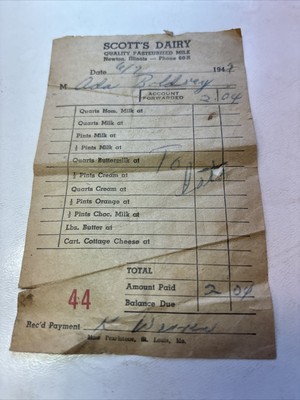 SCOTT'S DAIRY
QUALITY PASTEURIZED MILK
Newton, Illinois — Phone
Date 194
M Ada
ACCOUNT FORWARDED 2 04
Quarts Hom. Milk at
Quarts Milk at
Pints Milk at
½ Pints Milk at
Quarts Buttermilk at To
½ Pints Cream at Date
Quarts Cream at
½ Pints Orange at
½ Pints Choc. Milk at
Lbs. Butter at
Cart. Cottage Cheese at
TOTAL
44 Amount Paid 2 04
Balance Due
Rec'd Payment K
St. Louis, Mo.